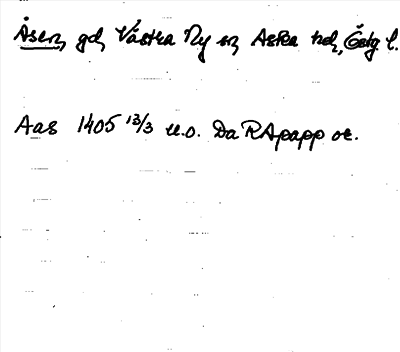 Åsen, gd, Västra Ny sn, Aska hd, Östg l.
Aas 1405 13/3 u.o. Da RApapp or.